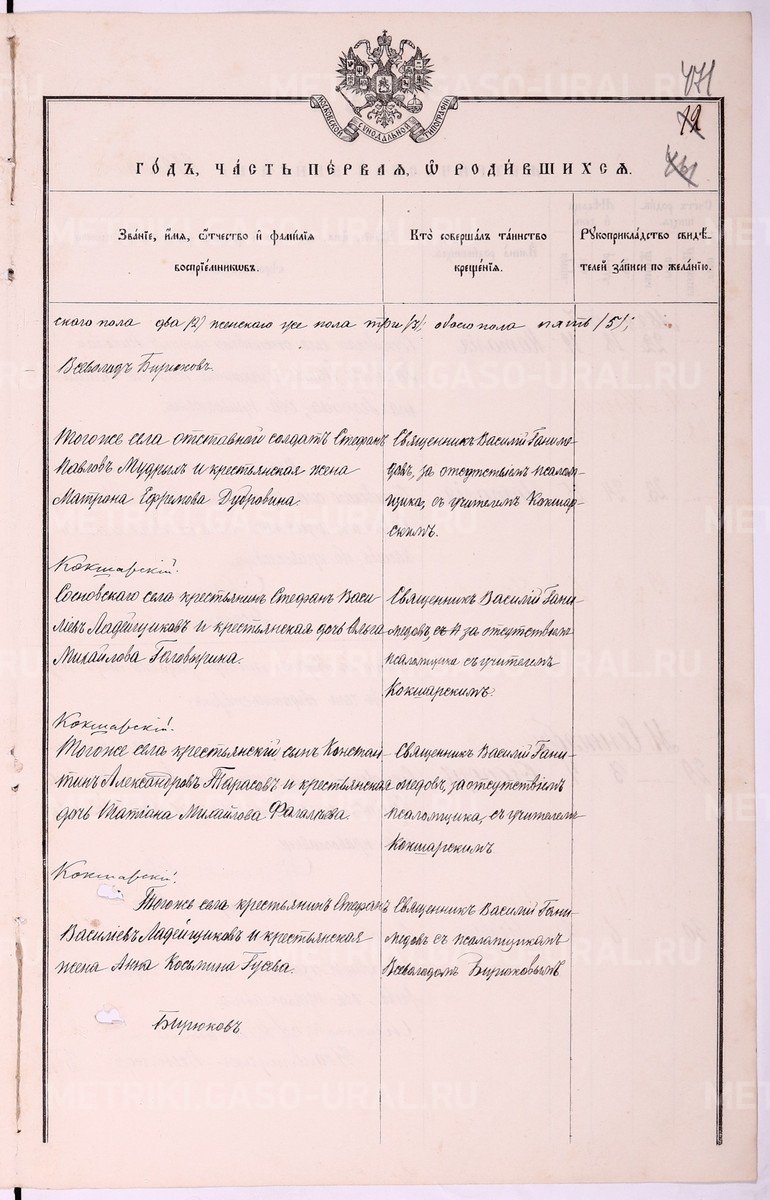 471
12
МОСКОВСКОЙ СѴНОДАЛЬНОЙ ТИПОГРАФІИ
ГО́ДЪ, ЧА́СТЬ ПЕ́РВАЯ, Ѽ РОДИ́ВШИХСЯ.
Зва́нїе, и҆́мя, ѻ҆́тчество и҆ фами́лїя
воспрїе́мниковъ.
Кто̀ соверша́лъ та́инство
креще́нїя.
Рукоприкла́дство свидѣ́-
телей за́писи по жела́нїю.
скаго пола два /2/ женскаго же пола три /3/, обоего пола пять /5/;
Всеволодъ Бирюковъ.
Тогоже села отставной солдатъ Стефанъ
Павловъ Мудрыхъ и крестьянская жена
Матрона Ефимова Дубровина.
Священникъ Василій Гániме-
довъ, за отсутствіемъ псалом-
щика, съ учителемъ Кокшар-
скимъ.
Кокшарскій.
Сосновскаго села крестьянинъ Стефанъ Васи-
льевъ Ладейщиковъ и крестьянская дочь Ольга
Михайлова Головырина.
Священникъ Василій Гани-
медовъ, за отсутствіемъ
псаломщика съ учителемъ
Кокшарскимъ.
Кокшарскій.
Тогоже села крестьянскій сынъ Констан-
тинъ Александровъ Тарасовъ и крестьянская
дочь Татіана Михайлова
Священникъ Василій Гани-
медовъ, за отсутствіемъ
псаломщика, съ учителемъ
Кокшарскимъ
Кокшарскій.
Тогоже села крестьянинъ Стефанъ
Василіевъ Ладейщиковъ и крестьянская
жена Анна Косьмина Гусева.
Священникъ Василій Гани-
медовъ съ псаломщикомъ
Всеволодомъ Бирюковымъ
Бирюковъ.
METRIKI.GASO-URAL.RU